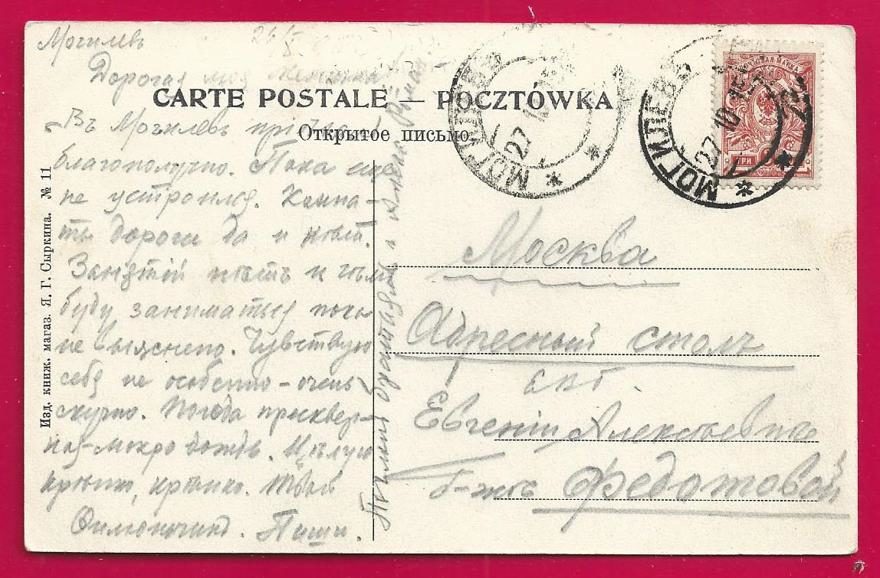 Могилевъ
Дорогая моя
CARTE POSTALE — POCZTÓWKA
Открытое письмо.
Въ Могилевъ
благополучно. Пока еще
не устроился. Комна-
ты дороги да и нѣтъ.
Занятій нѣтъ и чѣмъ
буду заниматься пока
не выяснено. Чувствую
себя не особенно - очень
скучно. Погода пресквер-
ная - мокро дождь. Цѣлую
крѣпко, крѣпко. Твой
Пиши.
Изд. книж. магаз. Я. Г. Сыркина. № 11
МОГИЛЕВЪ
27 10
МОГИЛЕВЪ
27 10
ТРИ
Москва
Адресный столъ
Евгеніи Алексѣевнѣ
Федотовой